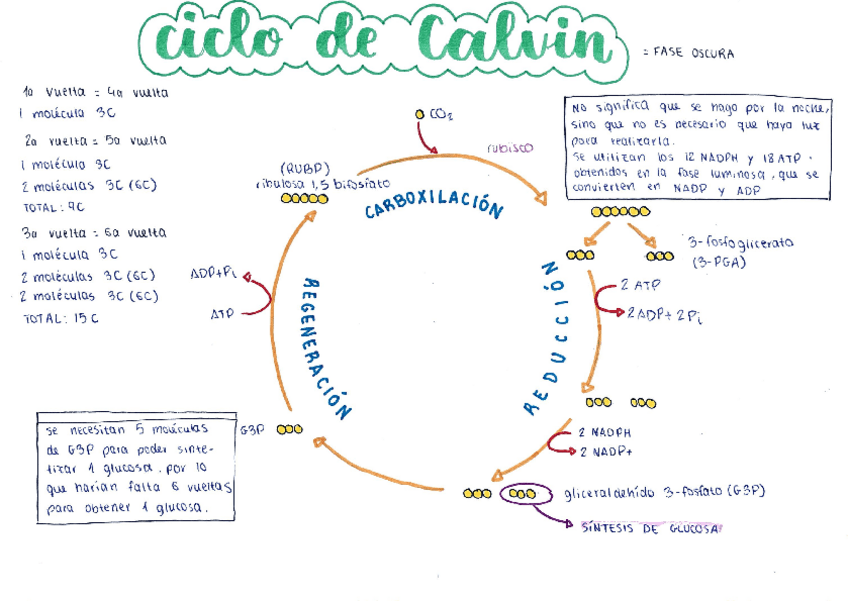 ciclo de Calvin
= FASE OSCURA
1a vuelta = 4a vuelta
1 molécula 3C
2a vuelta = 5a vuelta
1 molécula 3C
2 moléculas 3C (6C)
TOTAL: 9C
3a vuelta = 6a vuelta
1 molécula 3C
2 moléculas 3C (6C)
2 moléculas 3C (6C)
TOTAL: 15C
CO2
rubisco
No significa que se haga por la noche,
sino que no es necesario que haya luz
para realizarla.
Se utilizan los 12 NADPH y 18 ATP
obtenidos en la fase luminosa, que se
convierten en NADP y ADP
(RUBP)
ribulosa 1,5 bifosfato
CARBOXILACIÓN
3-fosfoglicerato
(3-PGA)
2 ATP
2 ADP + 2 Pi
REDUCCIÓN
2 NADPH
2 NADP+
gliceraldehído 3-fosfato (G3P)
SÍNTESIS DE GLUCOSA
G3P
REGENERACIÓN
ADP+Pi
ATP
se necesitan 5 moléculas
de G3P para poder sinte-
tizar 1 glucosa, por lo
que harían falta 6 vueltas
para obtener 1 glucosa.